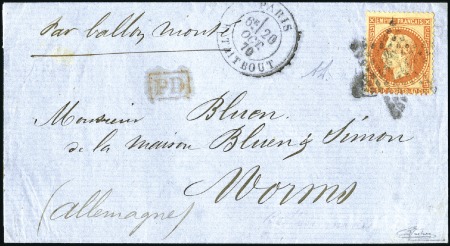 Par ballon monté
PARIS
6E 20
OCT.
70
R. TAITBOUT
EMPIRE FRANÇAIS
PD
Monsieur Bluen.
de la maison Bluen & Simon
Worms
(allemagne)